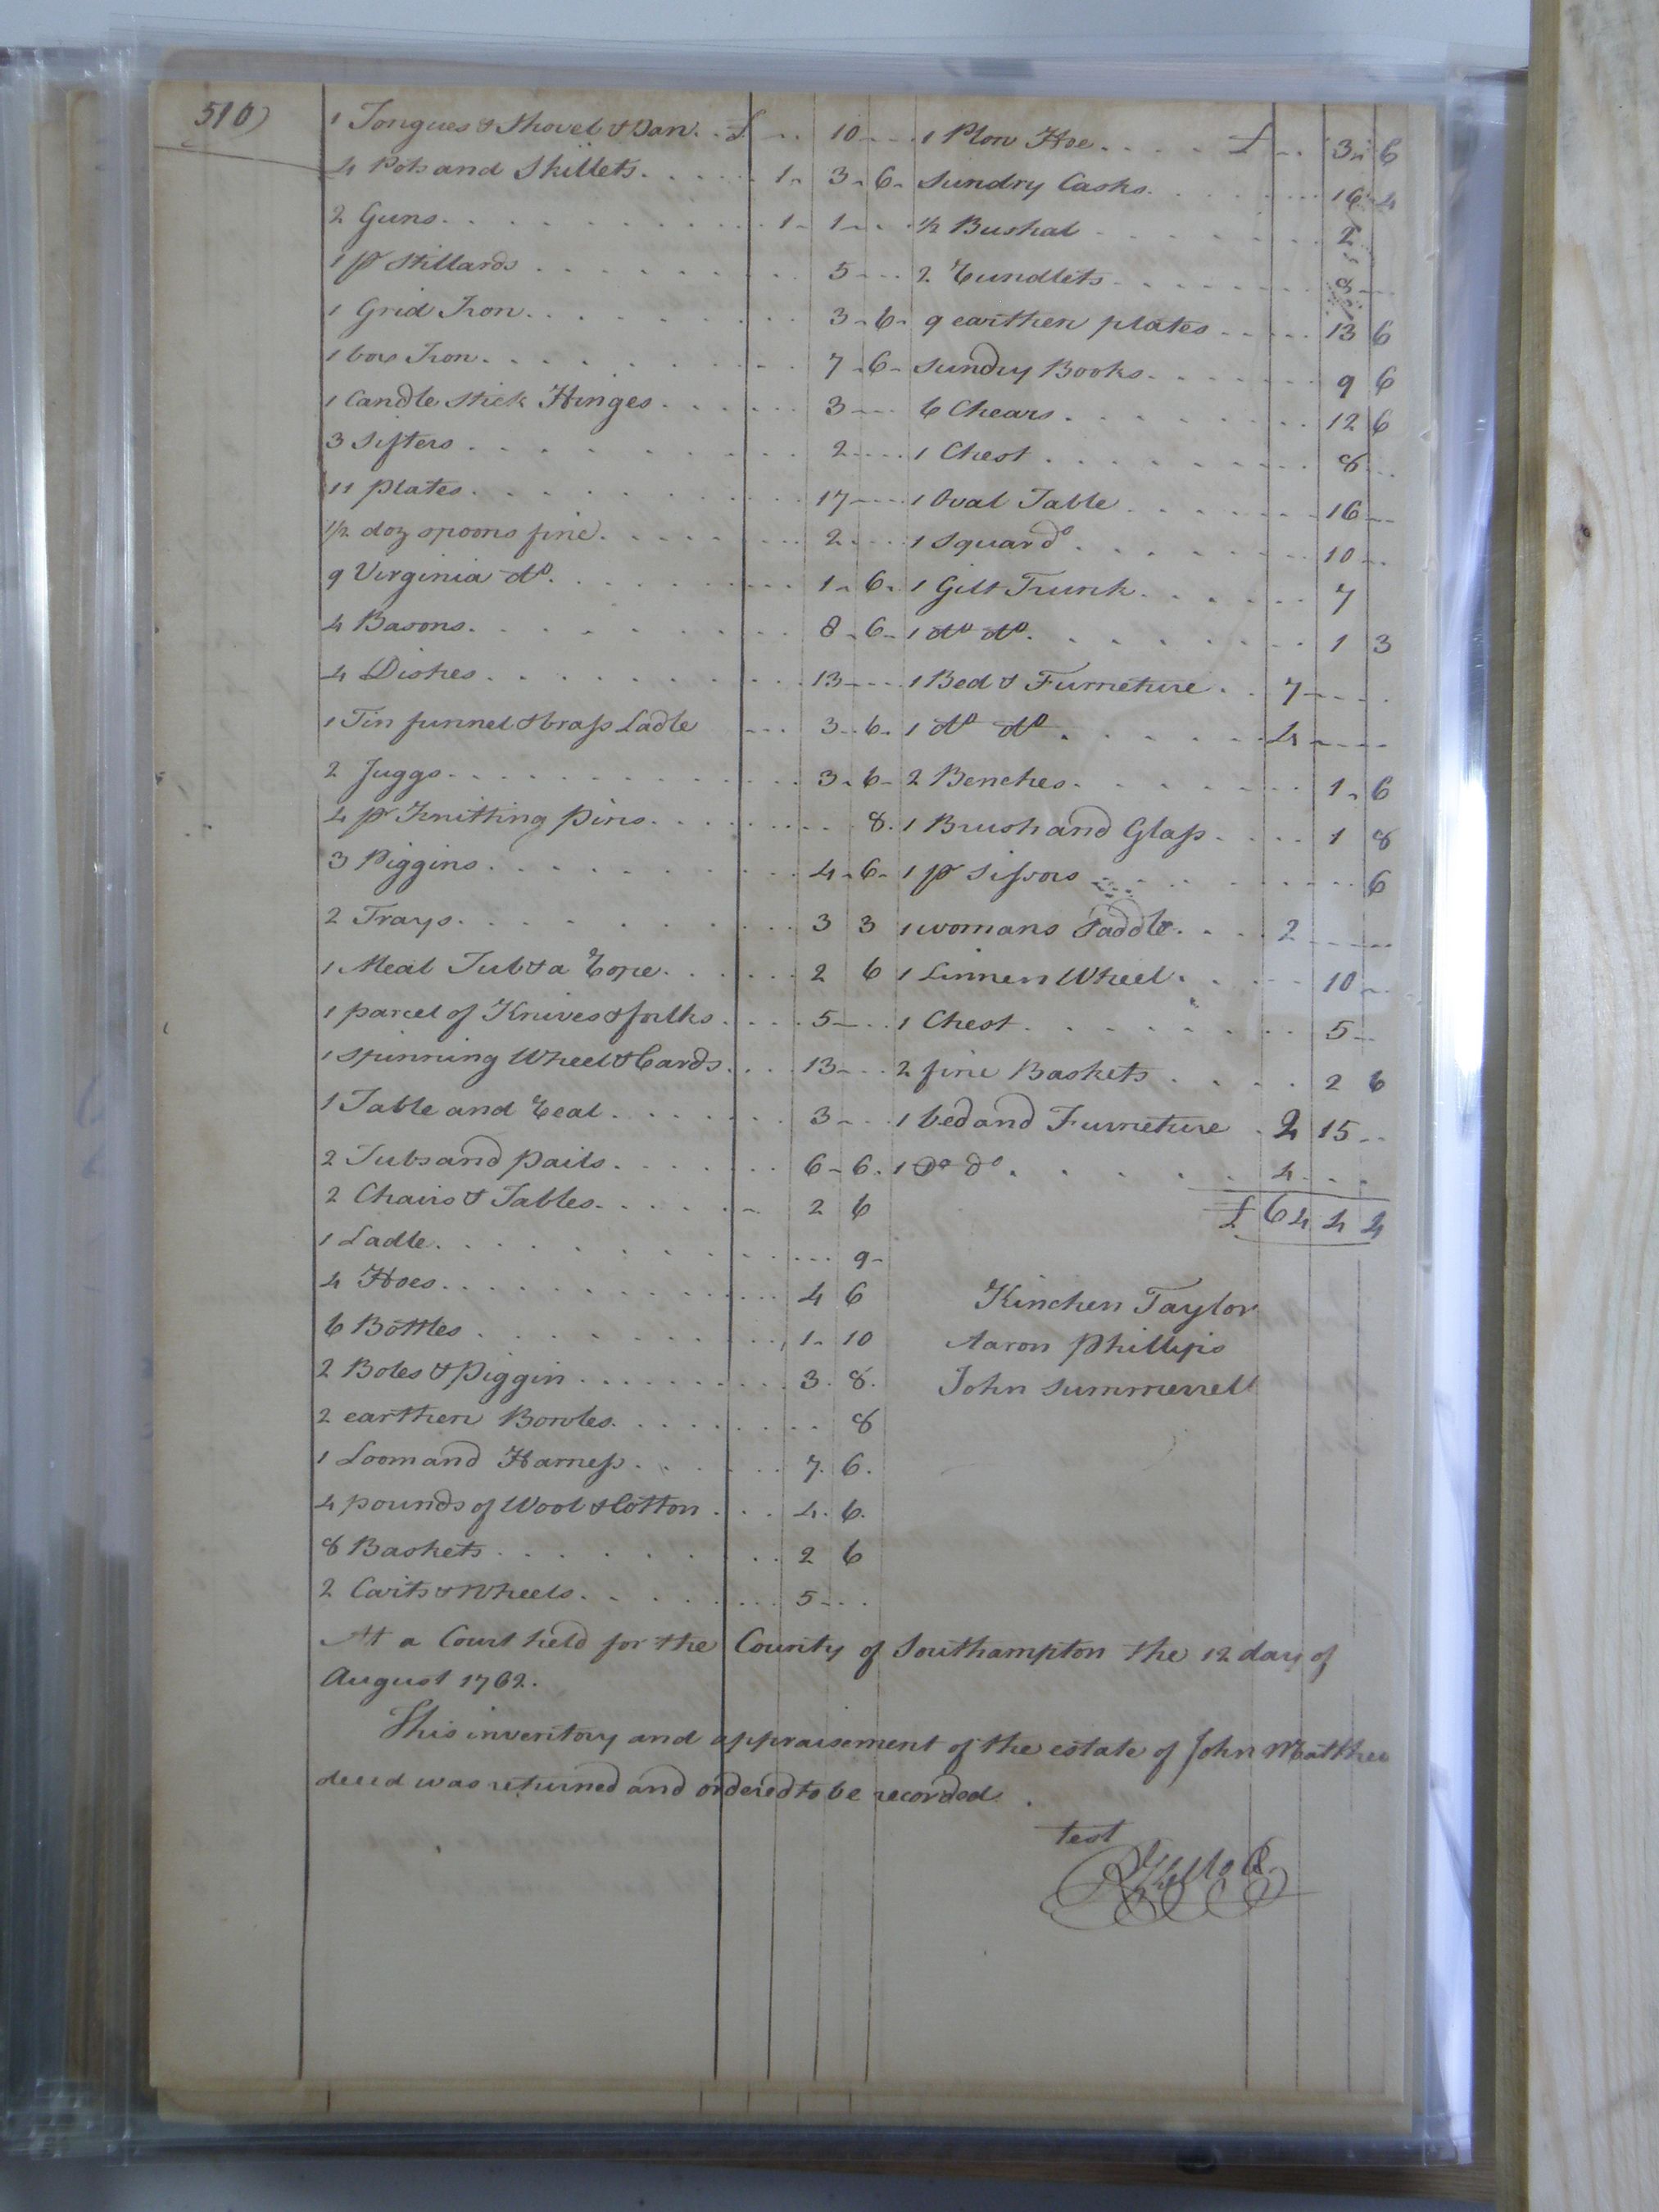 510)
1 Tongues & Shovel & Dan . . £ . . 10
4 Pots and Skillets . . . . . 1 - 3 - 6
2 Guns . . . . . 1 - 1
1 pr Stillards . . . . . 5
1 Grid Iron . . . . . 3 - 6
1 box Iron . . . . . 7 - 6
1 Candle stick Hinges . . . . . 3
3 Sifters . . . . . 2
11 plates . . . . . 17
1/2 doz spoons fine . . . . . 2
9 Virginia do . . . . . 1 - 6
4 Basons . . . . . 8 - 6
4 Dishes . . . . . 13
1 Tin funnel & brass Ladle . . . 3 - 6
2 Juggs . . . . . 3 - 6
4 pr Knitting pins . . . . . 8
3 Piggins . . . . . 4 - 6
2 Trays . . . . . 3 3
1 Meal Tub & a . . . . . 2 6
1 parcel of Knives & forlks . . . . 5
1 spinning Wheel & Cards . . . . 13
1 Table and . . . . . 3
2 Tubs and pails . . . . . 6 - 6
2 Chairs & Tables . . . . . 2 6
1 Ladle . . . . . 9
4 Hoes . . . . . 4 6
6 Bottles . . . . . 1 - 10
2 Boles & Piggin . . . . . 3 . 8
2 earthen Bowles . . . . . 8
1 Loom and Harness . . . . . 7 . 6
4 pounds of Wool & Cotton . . . 4 . 6
8 Baskets . . . . . 2 6
2 Carts & Wheels . . . . . 5
1 Plow Hoe . . . . £ . . 3 6
Sundry Casks . . . . . 16 4
1/2 Bushal . . . . . 2
2 Rundlets . . . . . 3
9 earthen plates . . . . . 13 6
Sundry Books . . . . . 9 6
6 Chears . . . . . 12 6
1 Chest . . . . . 8
1 Oval Table . . . . . 16
1 Squar do . . . . . 10
1 Gilt Trunk . . . . . 7
1 do do . . . . . 1 3
1 Bed & Furneture . . 7
1 do do . . . . . 4
2 Benches . . . . . 1 6
1 Brush and Glass . . . . 1 8
1 pr Sissors . . . . . 6
1 womans Saddle . . . . 2
1 Linnen Wheel . . . . . 10
1 Chest . . . . . 5
2 fine Baskets . . . . . 2 6
1 bed and Furneture . 2 15
1 do do . . . . . 4
£ 64 4 4
Kinchen Taylor
Aaron Phillips
John Summerrell
At a Court held for the County of Southampton the 12 day of
August 1762.
This inventory and appraisement of the estate of John Matthew
deced was returned and ordered to be recorded.
test